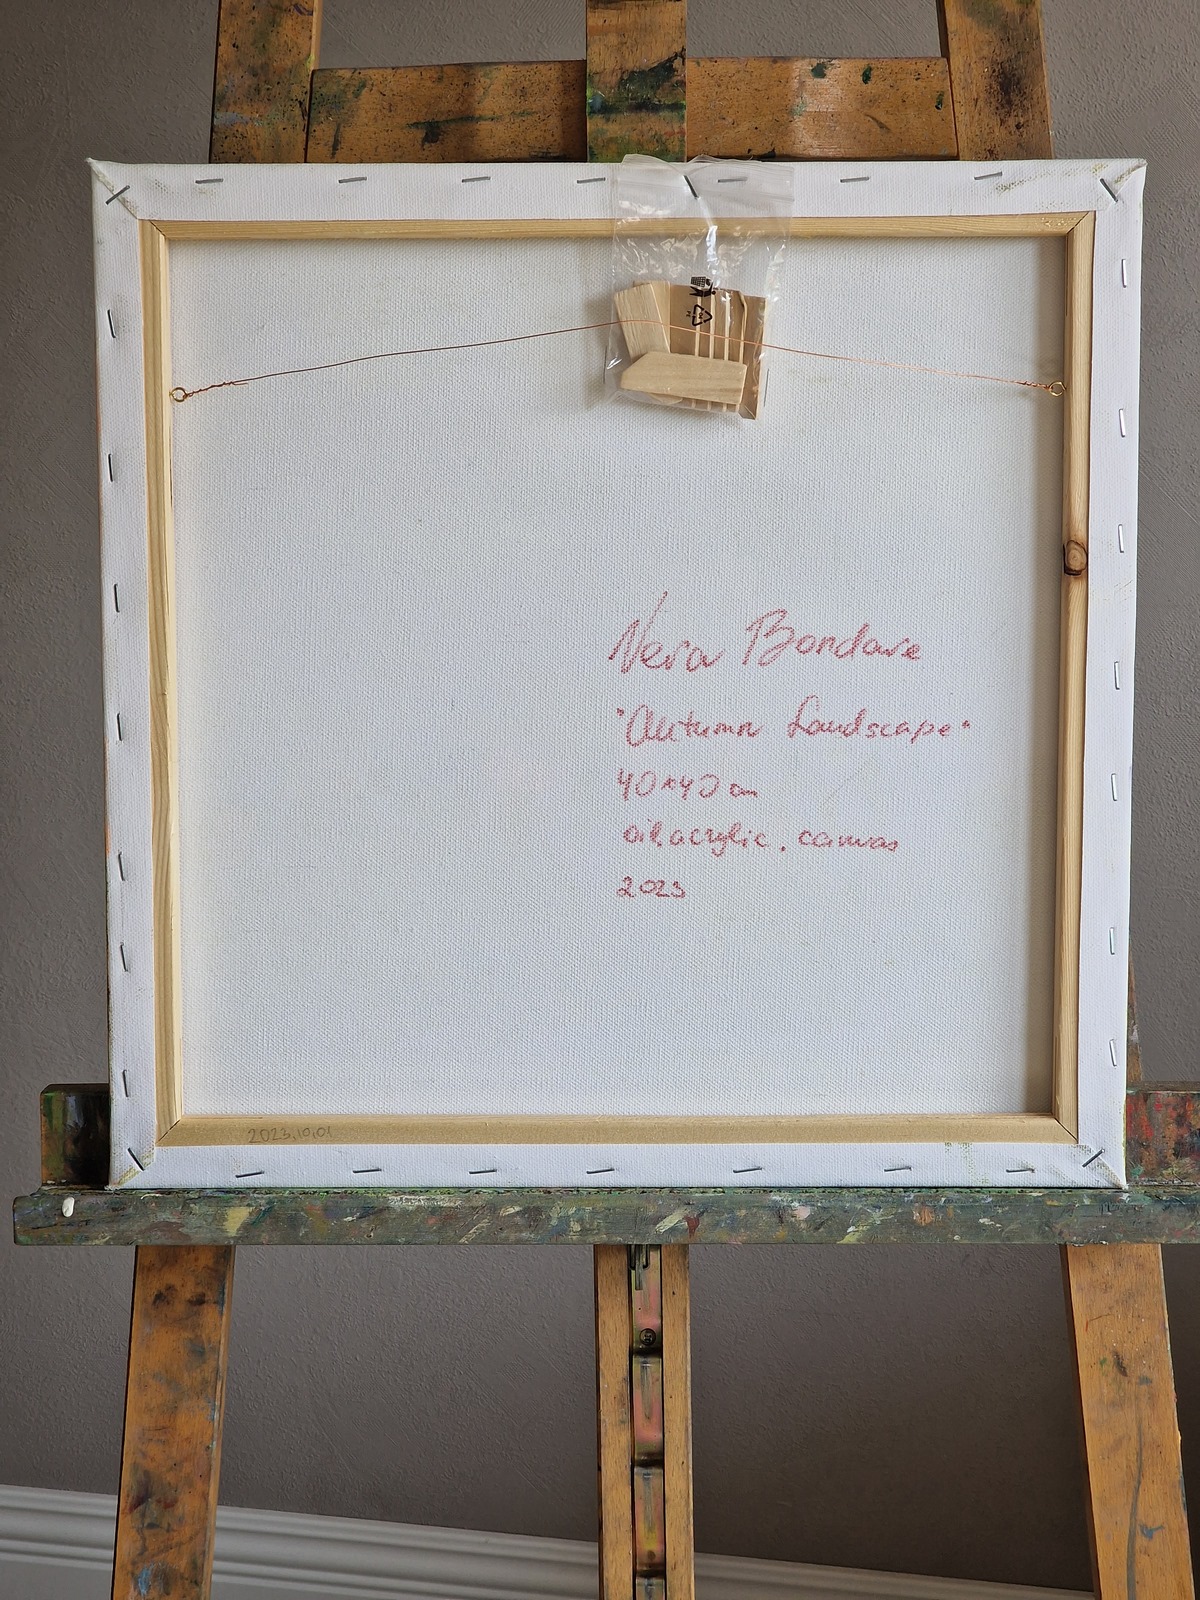 Vera Bondare
"Autumn Landscape"
40x40 cm
oil, acrylic, canvas
2023
2023.10.01